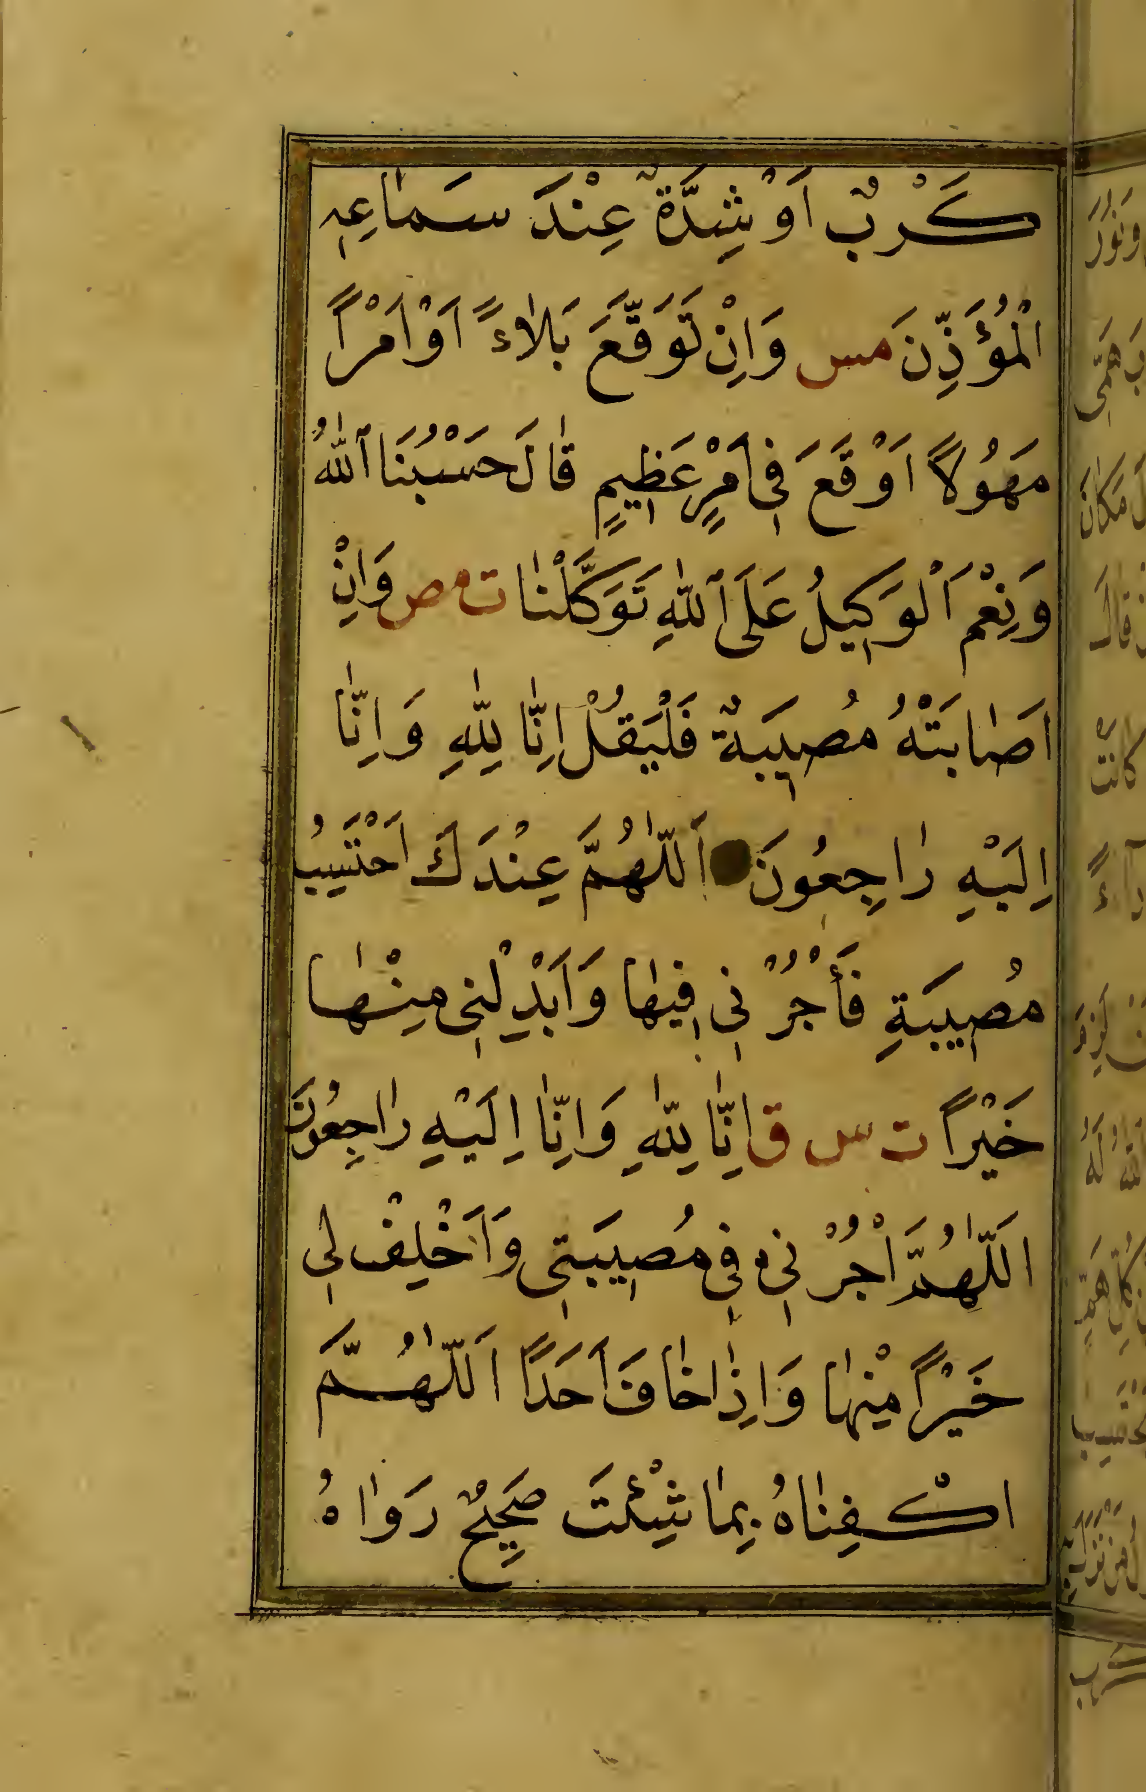 كَرْبٌ اَوْ شِدَّةٌ عِنْدَ سَمَاعِهِ
الْمُؤَذِّنَ مس وَاِنْ تَوَقَّعَ بَلَاءً اَوْ اَمْرًا
مَهُولًا اَوْ وَقَعَ فِى اَمْرٍ عَظِيمٍ قَالَ حَسْبُنَا اللّٰهُ
وَنِعْمَ الْوَكِيلُ عَلَى اللّٰهِ تَوَكَّلْنَا ت مص وَاِنْ
اَصَابَتْهُ مُصِيبَةٌ فَلْيَقُلْ اِنَّا لِلّٰهِ وَاِنَّا
اِلَيْهِ رَاجِعُونَ اَللّٰهُمَّ عِنْدَكَ اَحْتَسِبُ
مُصِيبَةِ فَأْجُرْنِى فِيهَا وَاَبْدِلْنِى مِنْهَا
خَيْرًا ت س ق اِنَّا لِلّٰهِ وَاِنَّا اِلَيْهِ رَاجِعُونَ
اللّٰهُمَّ اْجُرْنِى فِى مُصِيبَتِى وَاَخْلِفْ لِى
خَيْرًا مِنْهَا وَاِذَا خَافَ اَحَدًا اَللّٰهُمَّ
اكْفِنَاهُ بِمَا شِئْتَ صَحِيحٌ رَوَاهُ